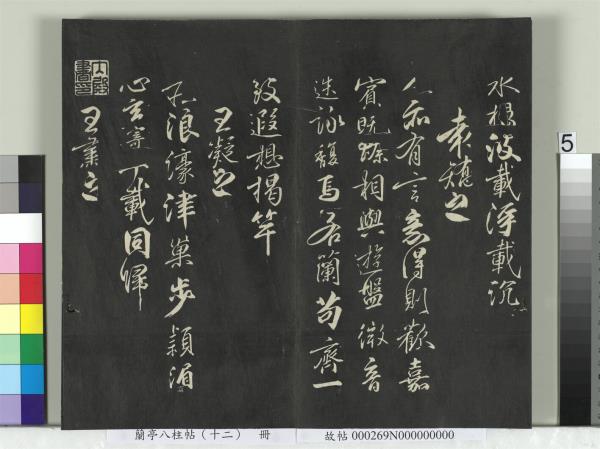 水波載浮載沉
袁嶠之
人亦有言意得則歡嘉
賓既臻相與遊盤微音
迭詠馥焉若蘭苟齊一
致遐想揭竿
王凝之
莊浪濠津巢步潁湄
心玄寄千載同歸
王肅之
5
蘭亭八柱帖(十二) 冊
故帖 000269N000000000